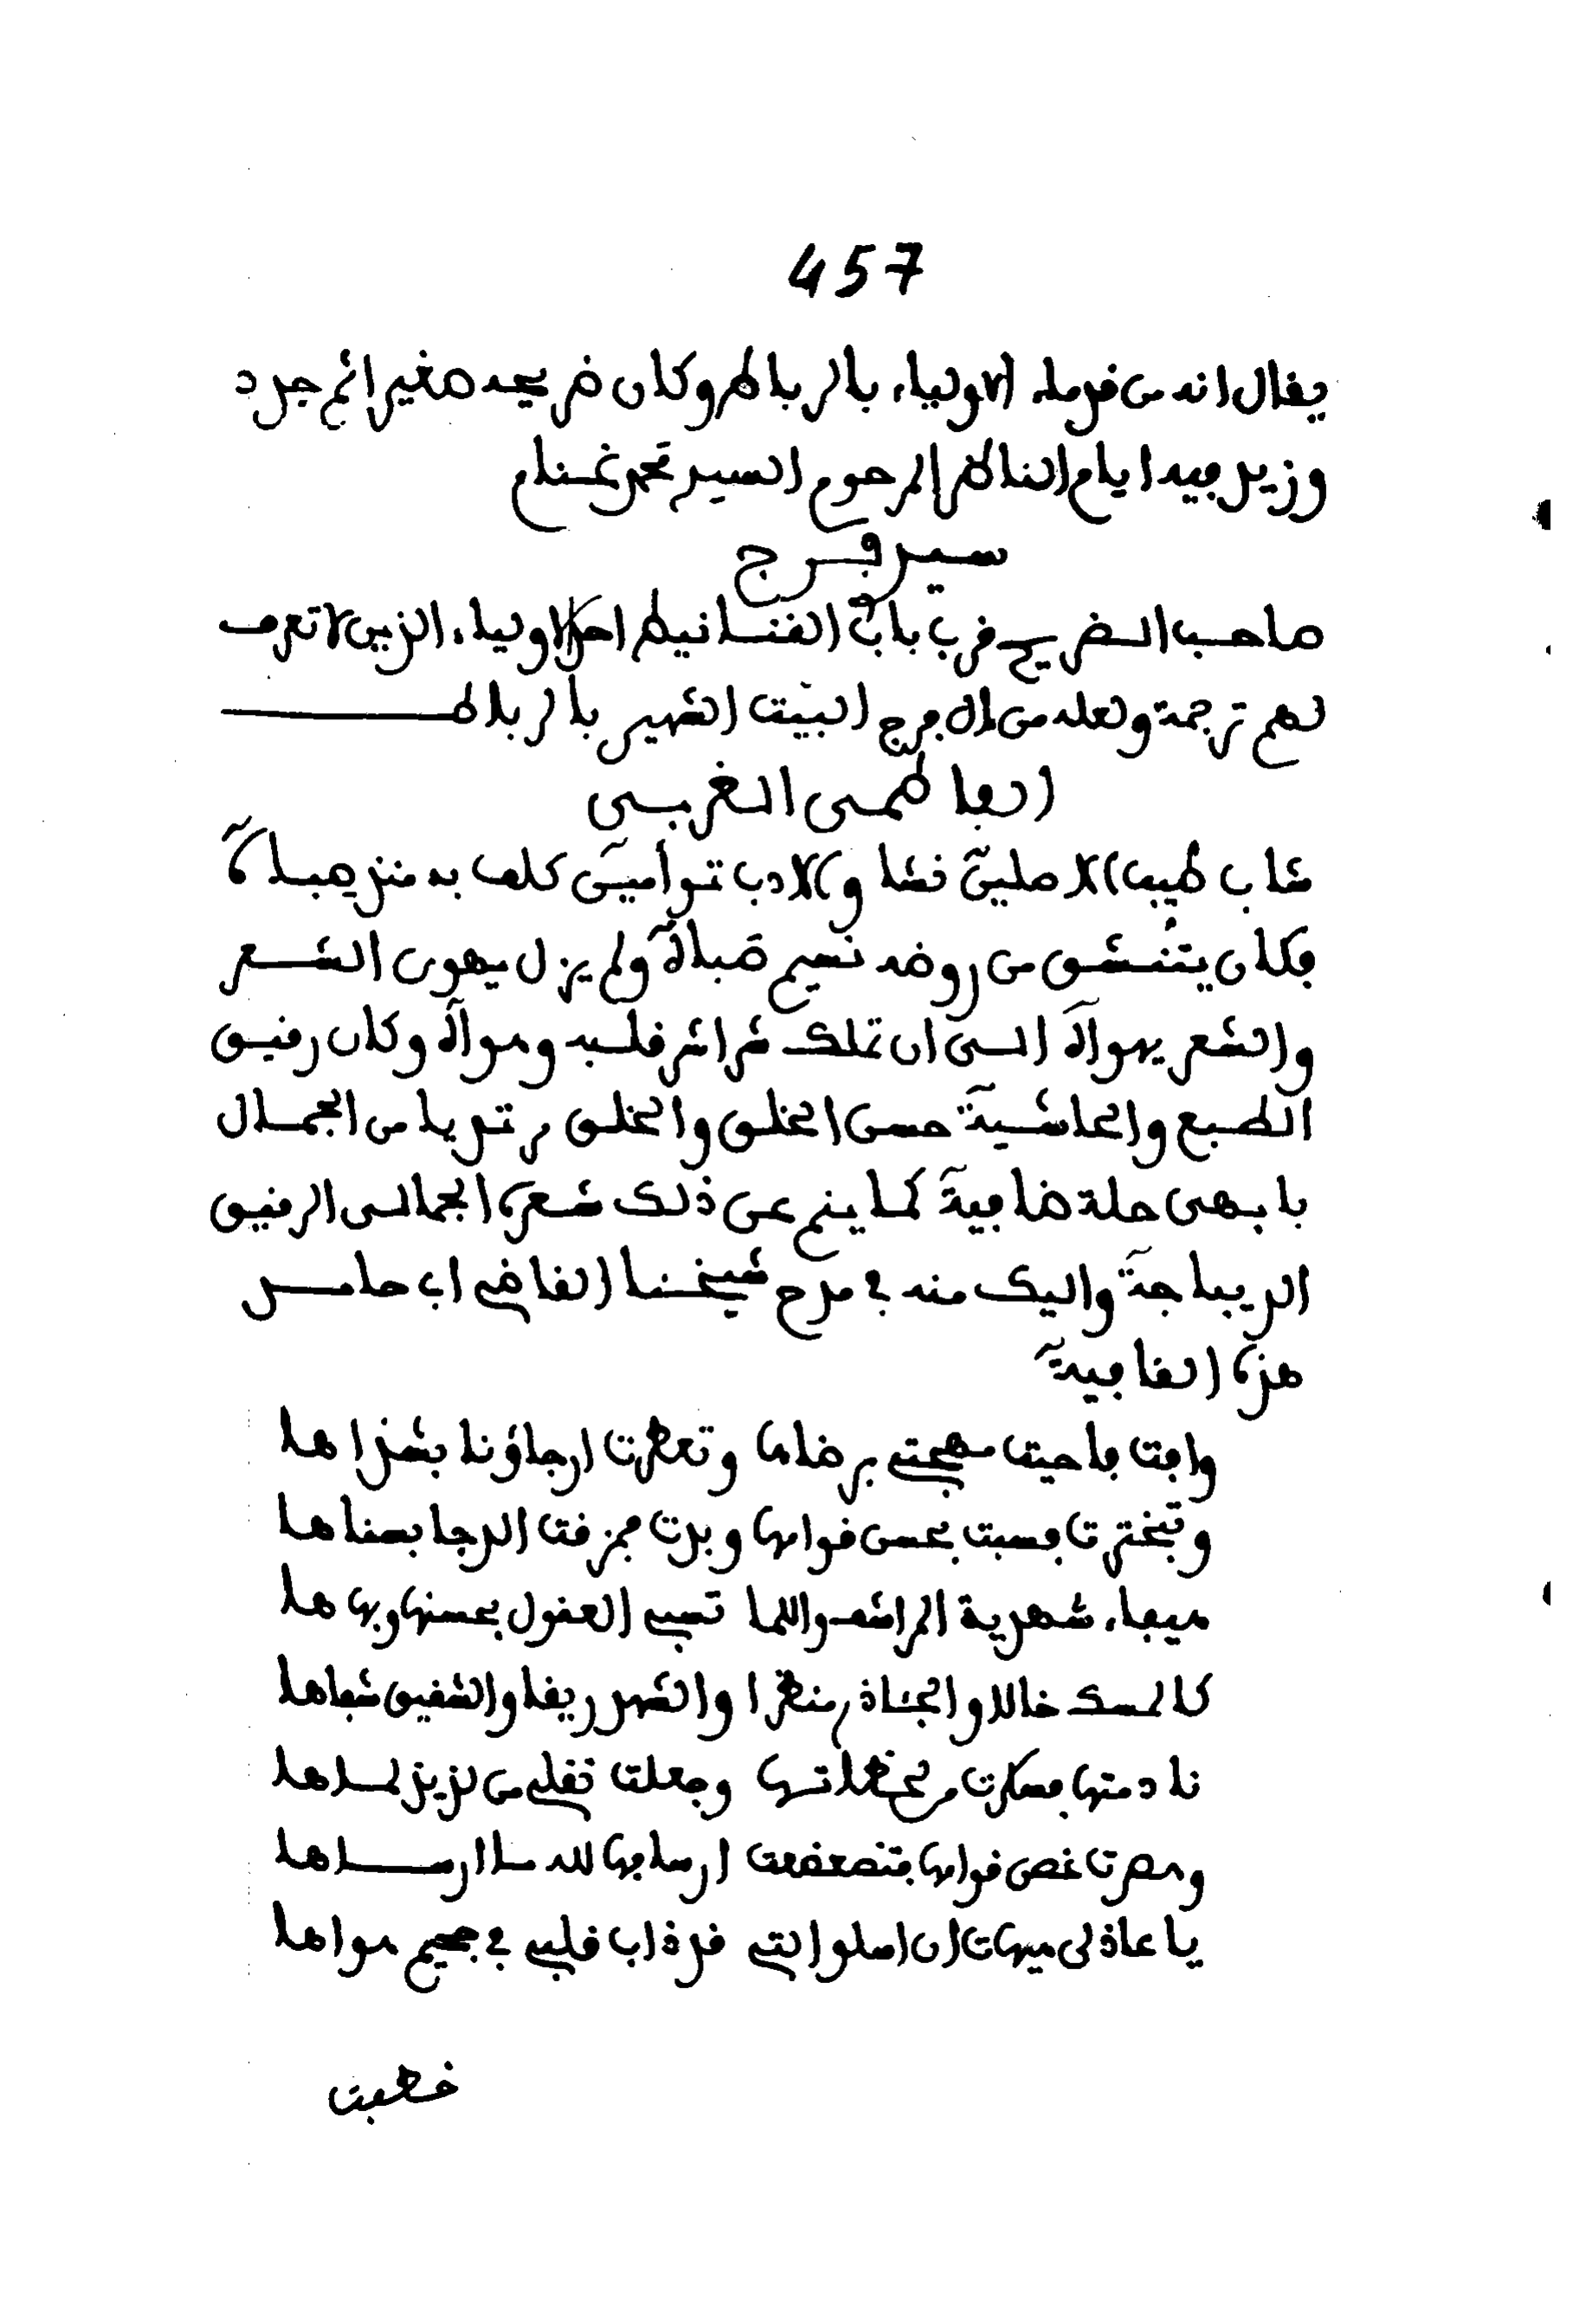 457
يقال انه من قدماء الاولياء بالرباط وكان ضريحه صغيرا ثم جدد
وزيد فيه ايام الناظر المرحوم السيد محمد غنام
سيد فرج
صاحب الضريح قرب باب القنانيط احد الاولياء الذين لا تعرف
لهم ترجمة ولعله من ءال فرج البيت الشهير بالرباط
الفاطمى الغربى
شاب طيب الاصلين نشا والادب توأمين كلف به منذ صباه
فكان يتنشق من روضه نسيم صباه ولم يزل يهوى الشعر
والشعر يهواه الى ان تملك شراشر قلبه وهواه وكان رقيق
الطبع والحاشية حسن الخلق والخلق مرتديا من الجمال
بابهى حلة ضافية كما ينم عن ذلك شعره الجمالى الرقيق
الديباجة واليك منه في مدح شيخنا القاضي اب حامد
هذه القافية
وافت فاحيت مهجتي برضاها وتعطرت ارجاؤنا بشذاها
وتبخترت فسبت بحسن قوامها وبدت فمزقت الدجا بسناها
هيفاء شهدية المراشف واللما تسبي العقول بحسنها وبهاها
كالمسك خالا والجئاذر منظرا والشهد ريقا والشقيق شفاها
نادمتها فسكرت من لحظاتها وجعلت نقلي من لذيذ لماها
وهصرت غصن قوامها فتضعضعت اردافها لله ما ارساها
يا عاذلى هيهات ان اسلو التي قد ذاب قلبي في جحيم هواها
خطبت